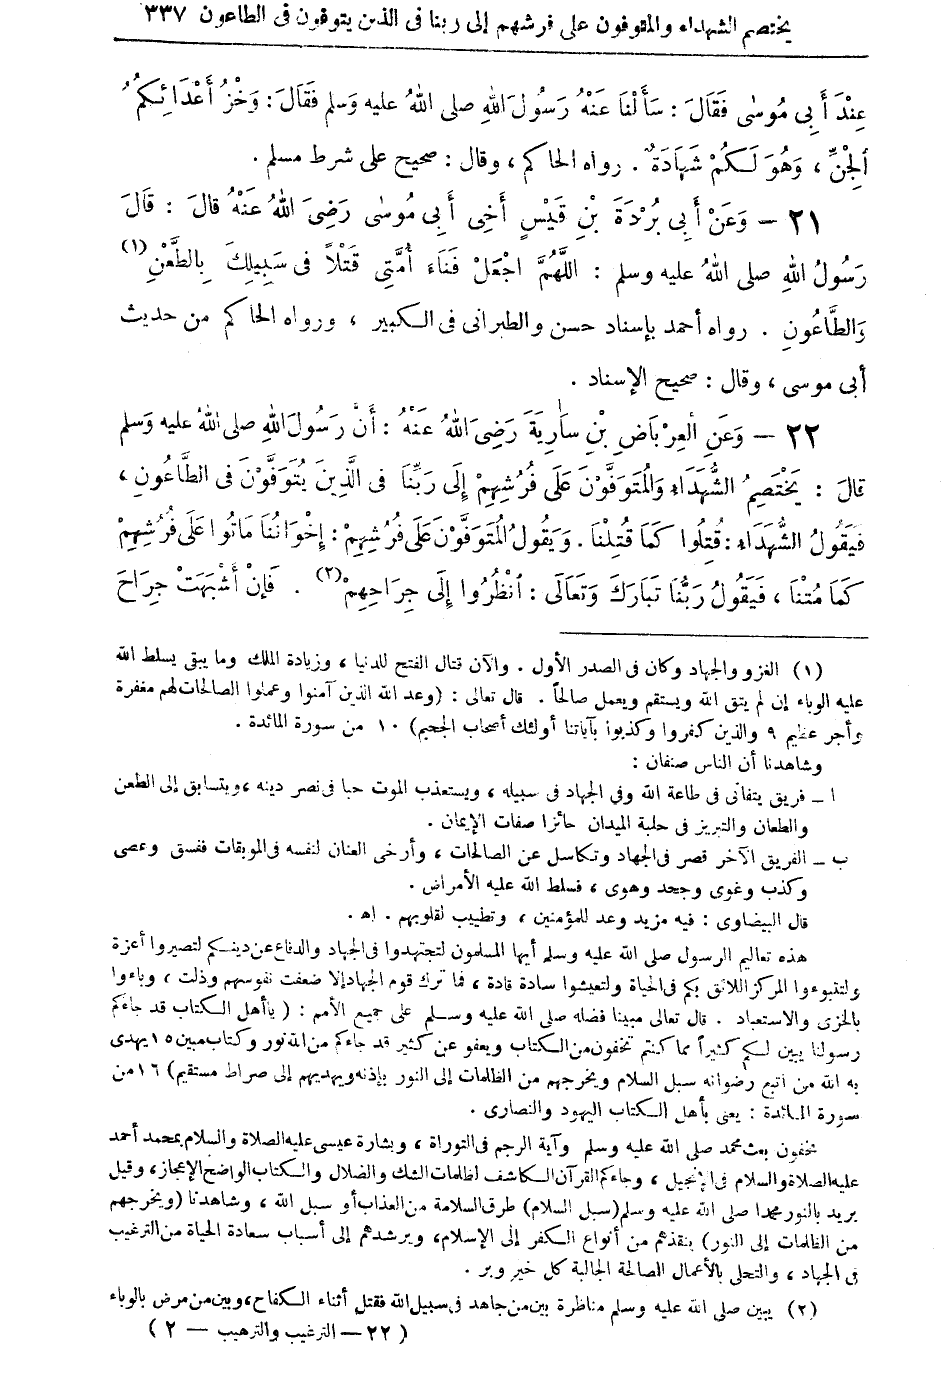 يختصم الشهداء والمتوفون على فرشهم إلى ربنا فى الذين يتوفون فى الطاعون ٣٣٧
عِنْدَ أَبِى مُوسٰى فَقَالَ : سَأَلْنَا عَنْهُ رَسُولَ اللهِ صلى اللهُ عليه وَسلم فَقَالَ : وَخْزُ أَعْدَائِكُمُ
الْجِنِّ ، وَهُوَ لَكُمْ شَهَادَةٌ . رواه الحاكم ، وقال : صحيح على شرط مسلم .
٢١ – وَعَنْ أَبِى بُرْدَةَ بْنِ قَيْسٍ أَخِى أَبِى مُوسٰى رَضِىَ اللهُ عَنْهُ قَالَ : قَالَ
رَسُولُ اللهِ صلى اللهُ عليه وسلم : اللَّهُمَّ اجْعَلْ فَنَاءَ أُمَّتِى قَتْلاً فى سَبِيلِكَ بِالطَّعْنِ (١)
وَالطَّاعُونِ . رواه أحمد بإسناد حسن والطبرانى فى الكبير ، ورواه الحاكم من حديث
أبى موسى ، وقال : صحيح الإسناد .
٢٢ – وَعَنِ الْعِرْبَاضِ بْنِ سَارِيَةَ رَضِىَ اللهُ عَنْهُ : أَنَّ رَسُولَ اللهِ صلى اللهُ عليه وَسلم
قالَ : يَخْتَصِمُ الشُّهَدَاءُ وَالْمُتَوَفَّوْنَ عَلَى فُرُشِهِمْ إِلَى رَبِّنَا فى الَّذِينَ يُتَوَفَّوْنَ فى الطَّاعُونِ ،
فَيَقُولُ الشُّهَدَاءُ : قُتِلُوا كَمَا قُتِلْنَا . وَيَقُولُ الْمُتَوَفَّوْنَ عَلَى فُرُشِهِمْ : إِخْوَانُنَا مَاتُوا عَلَى فُرُشِهِمْ
كَمَا مُتْنَا ، فَيَقُولُ رَبُّنَا تَبَارَكَ وَتَعَالَى : انْظُرُوا إِلَى جِرَاحِهِمْ (٢) . فَإِنْ أَشْبَهَتْ جِرَاحَ
(١) الغزو والجهاد وكان فى الصدر الأول . والآن قتال الفتح للدنيا ، وزيادة الملك وما يبقى يسلط الله
عليه الوباء إن لم يتق الله ويستقم ويعمل صالحاً . قال تعالى : (وعد الله الذين آمنوا وعملوا الصالحات لهم مغفرة
وأجر عظيم ٩ والذين كفروا وكذبوا بآياتنا أولئك أصحاب الجحيم) ١٠ من سورة المائدة .
وشاهدنا أن الناس صنفان :
ا – فريق يتفانى فى طاعة الله وفى الجهاد فى سبيله ، ويستعذب الموت حبا فى نصر دينه ، ويتسابق إلى الطعن
والطعان والتبريز فى حلبة الميدان حائزا صفات الإيمان .
ب – الفريق الآخر قصر فى الجهاد وتكاسل عن الصالحات ، وأرخى العنان لنفسه فى الموبقات ففسق وعصى
وكذب وغوى وجحد وهوى ، فسلط الله عليه الأمراض .
قال البيضاوى : فيه مزيد وعد للمؤمنين ، وتطييب لقلوبهم . اهـ .
هذه تعاليم الرسول صلى الله عليه وسلم أيها المسلمون لتجتهدوا فى الجهاد والدفاع عن دينكم لتصيروا أعزة
ولتتبوءوا المركز اللائق بكم فى الحياة ولتعيشوا سادة قادة ، فما ترك قوم الجهاد إلا ضعفت نفوسهم وذلت ، وباءوا
بالخزى والاستعباد . قال تعالى مبينا فضله صلى الله عليه وسلم على جميع الأمم : ( ياأهل الكتاب قد جاءكم
رسولنا يبين لكم كثيراً مما كنتم تخفون من الكتاب ويعفو عن كثير قد جاءكم من الله نور وكتاب مبين ١٥ يهدى
به الله من اتبع رضوانه سبل السلام ويخرجهم من الظلمات إلى النور بإذنه ويهديهم إلى صراط مستقيم) ١٦ من
سورة المائدة : يعنى بأهل الكتاب اليهود والنصارى .
تخفون بعث محمد صلى الله عليه وسلم وآية الرجم فى التوراة ، وبشارة عيسى عليه الصلاة والسلام بمحمد أحمد
عليه الصلاة والسلام فى الإنجيل ، وجاءكم القرآن الكاشف لظلمات الشك والضلال والكتاب الواضح الإعجاز ، وقيل
يريد بالنور محمدا صلى الله عليه وسلم (سبل السلام) طرق السلامة من العذاب أو سبل الله ، وشاهدنا (ويخرجهم
من الظلمات إلى النور) ينقذهم من أنواع الكفر إلى الإسلام ، ويرشدهم إلى أسباب سعادة الحياة من الترغيب
فى الجهاد ، والتحلى بالأعمال الصالحة الجالبة كل خير وبر .
(٢) يبين صلى الله عليه وسلم مناظرة بين من جاهد فى سبيل الله فقتل أثناء الكفاح ، وبين من مرض بالوباء
( ٢٢ – الترغيب والترهيب – ٢ )